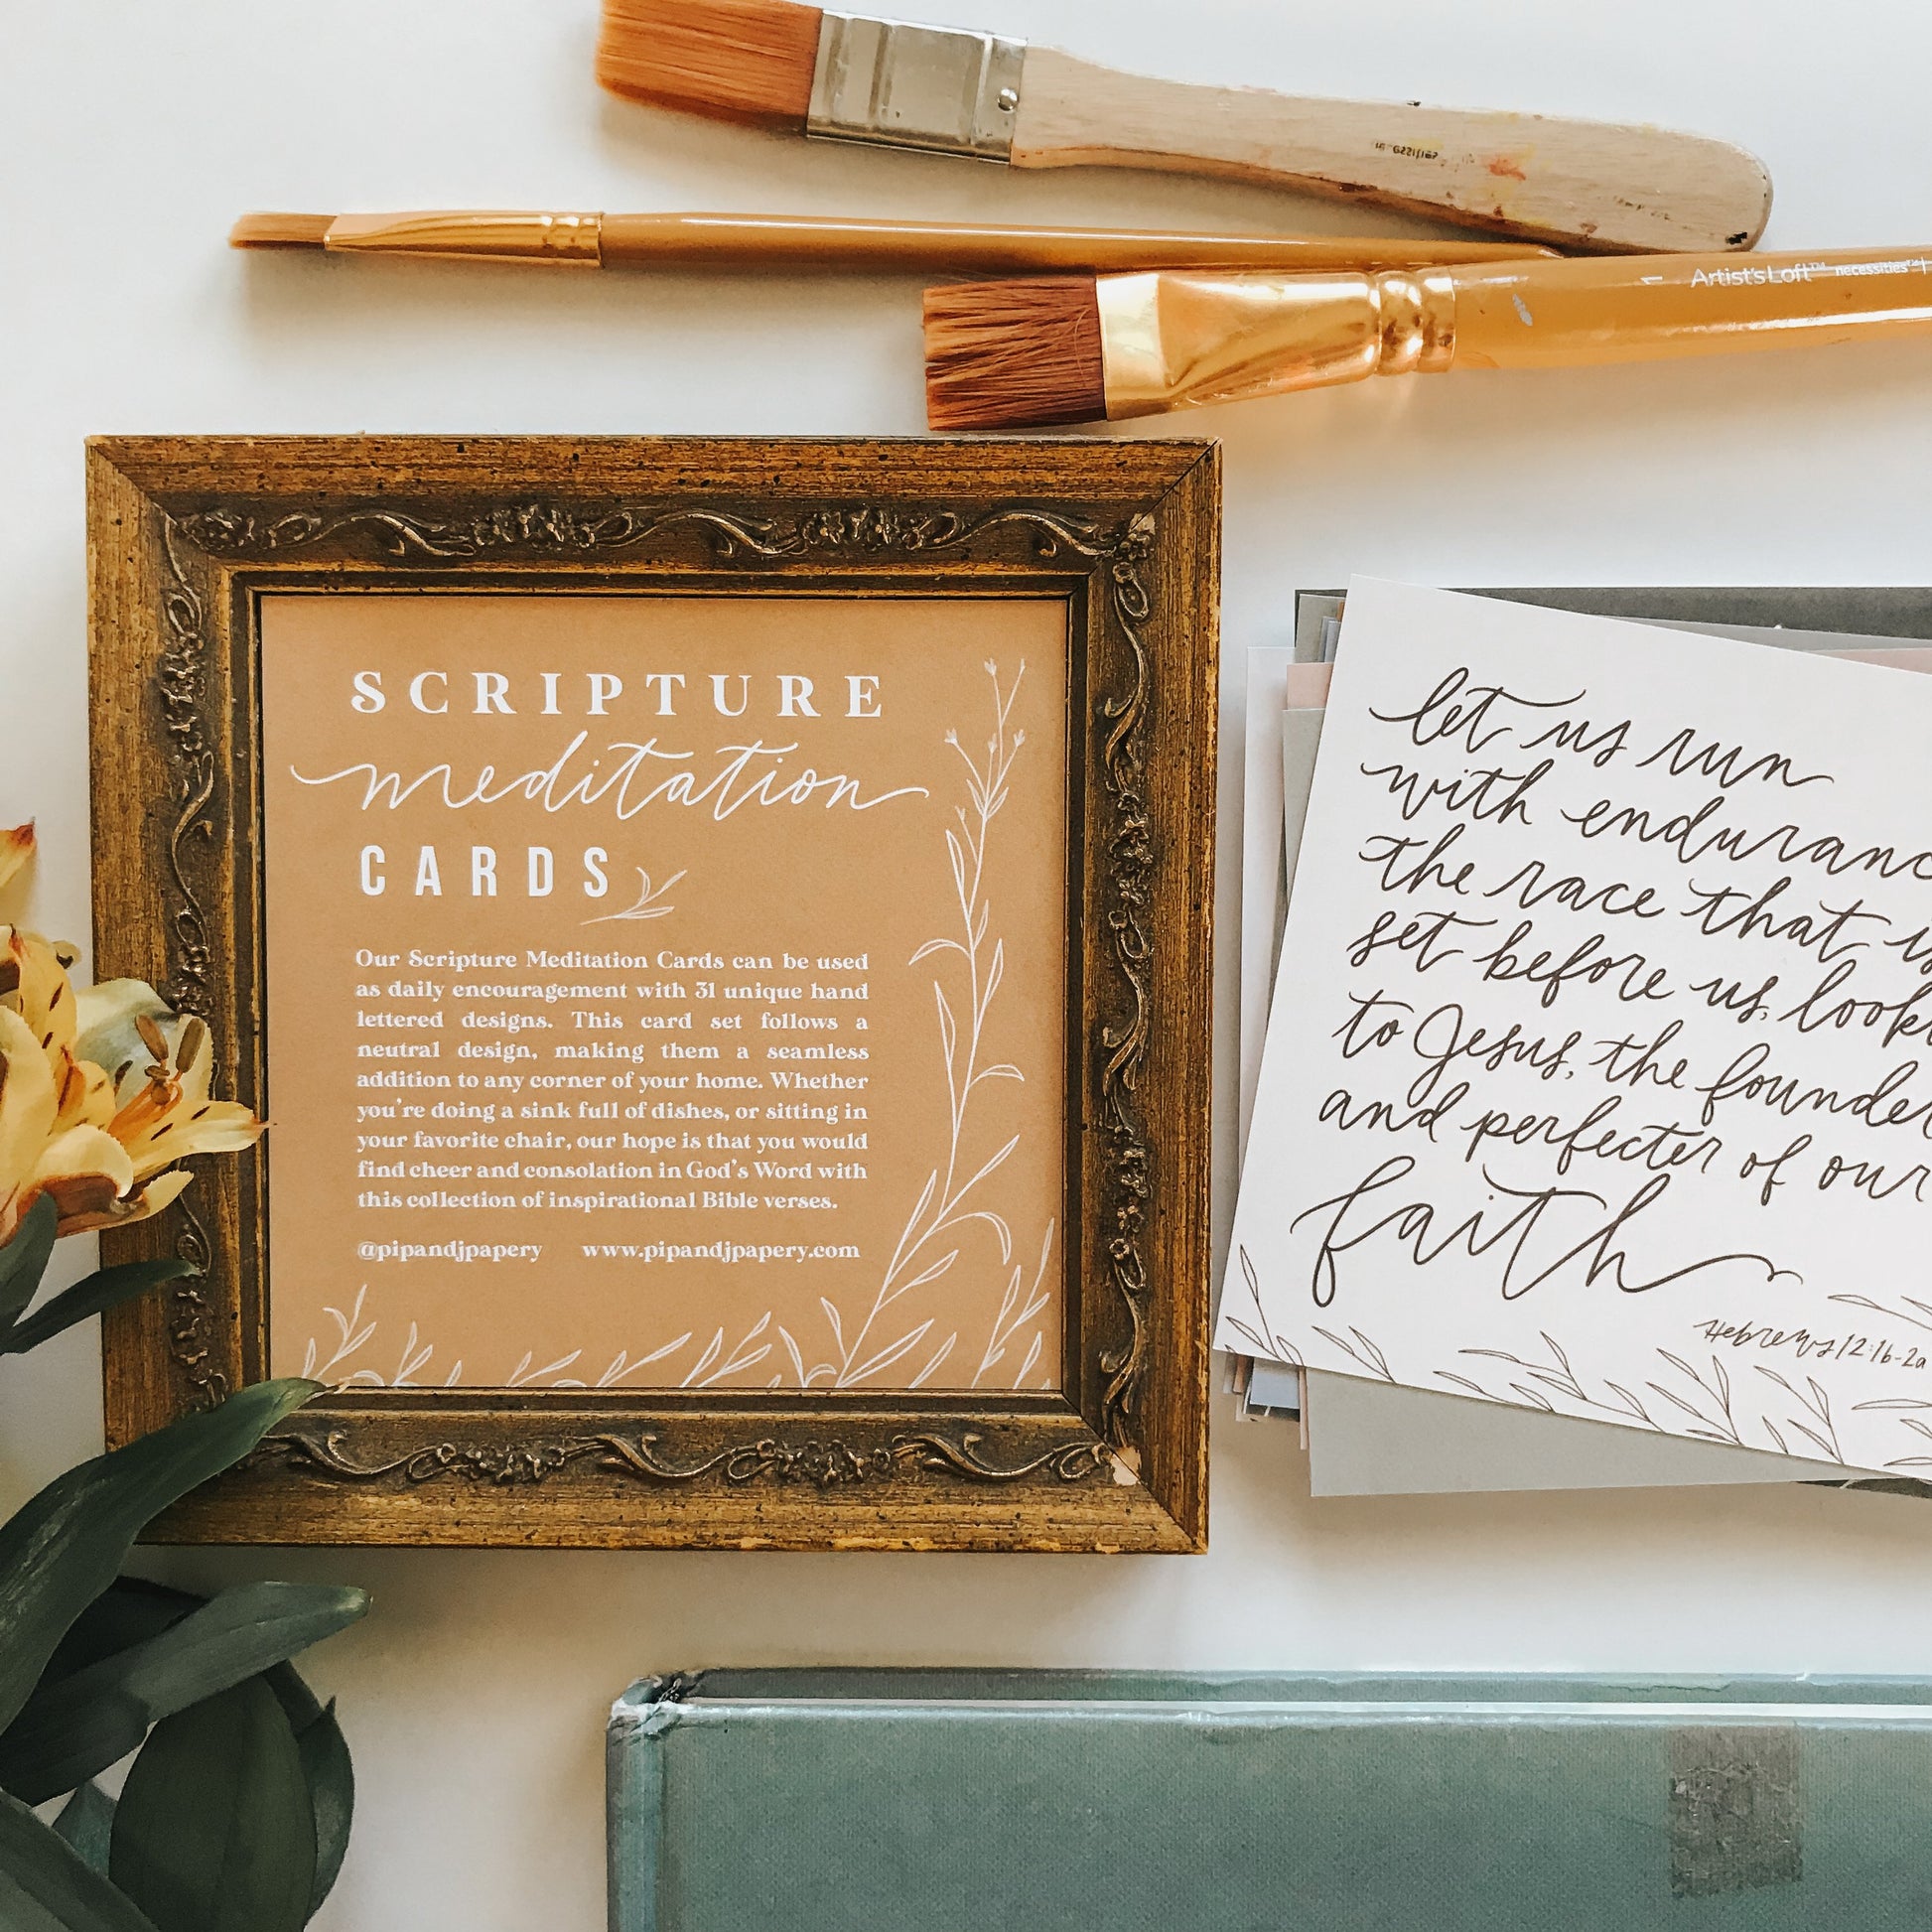 Artist'sLoft™ necessities™
SCRIPTURE
meditation
CARDS
Our Scripture Meditation Cards can be used
as daily encouragement with 31 unique hand
lettered designs. This card set follows a
neutral design, making them a seamless
addition to any corner of your home. Whether
you're doing a sink full of dishes, or sitting in
your favorite chair, our hope is that you would
find cheer and consolation in God's Word with
this collection of inspirational Bible verses.
@pipandjpapery www.pipandjpapery.com
let us run
with enduranc
the race that is
set before us, look
to Jesus, the founder
and perfecter of our
faith
Hebrews 12:1b-2a